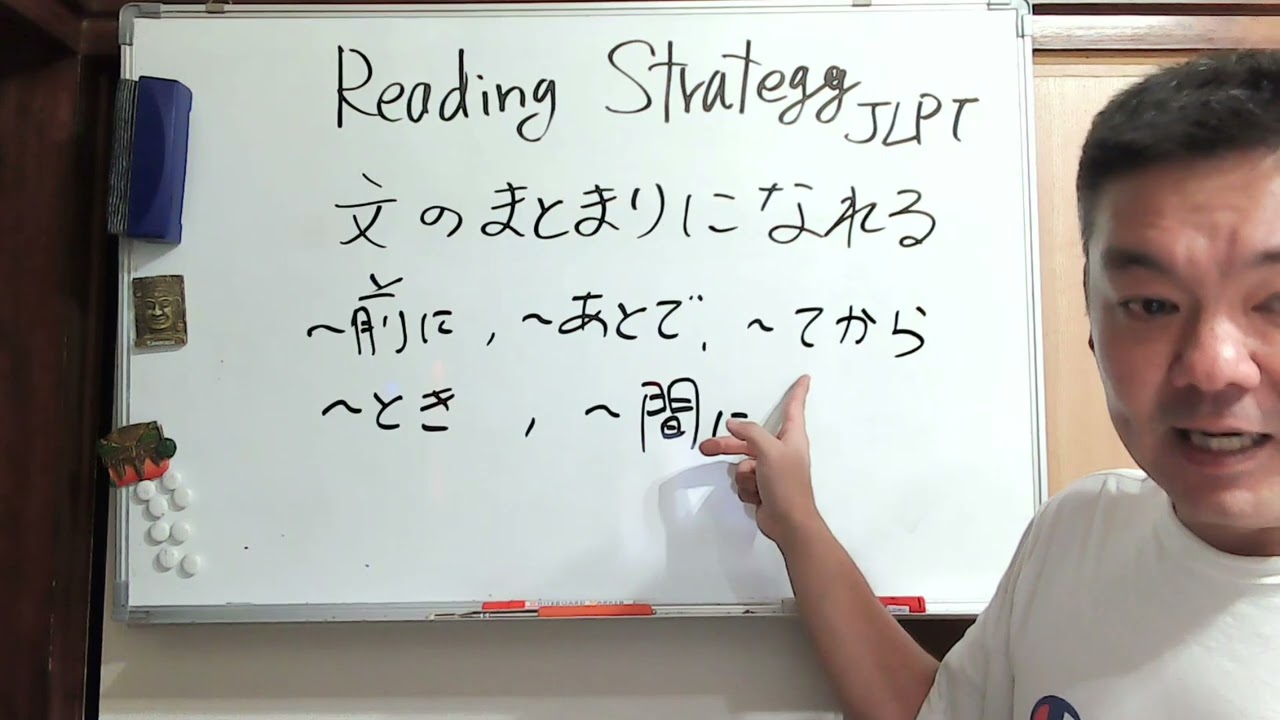 Reading Strategy JLPT
文のまとまりになれる
~前に, ~あとで, ~てから
~とき, ~間に